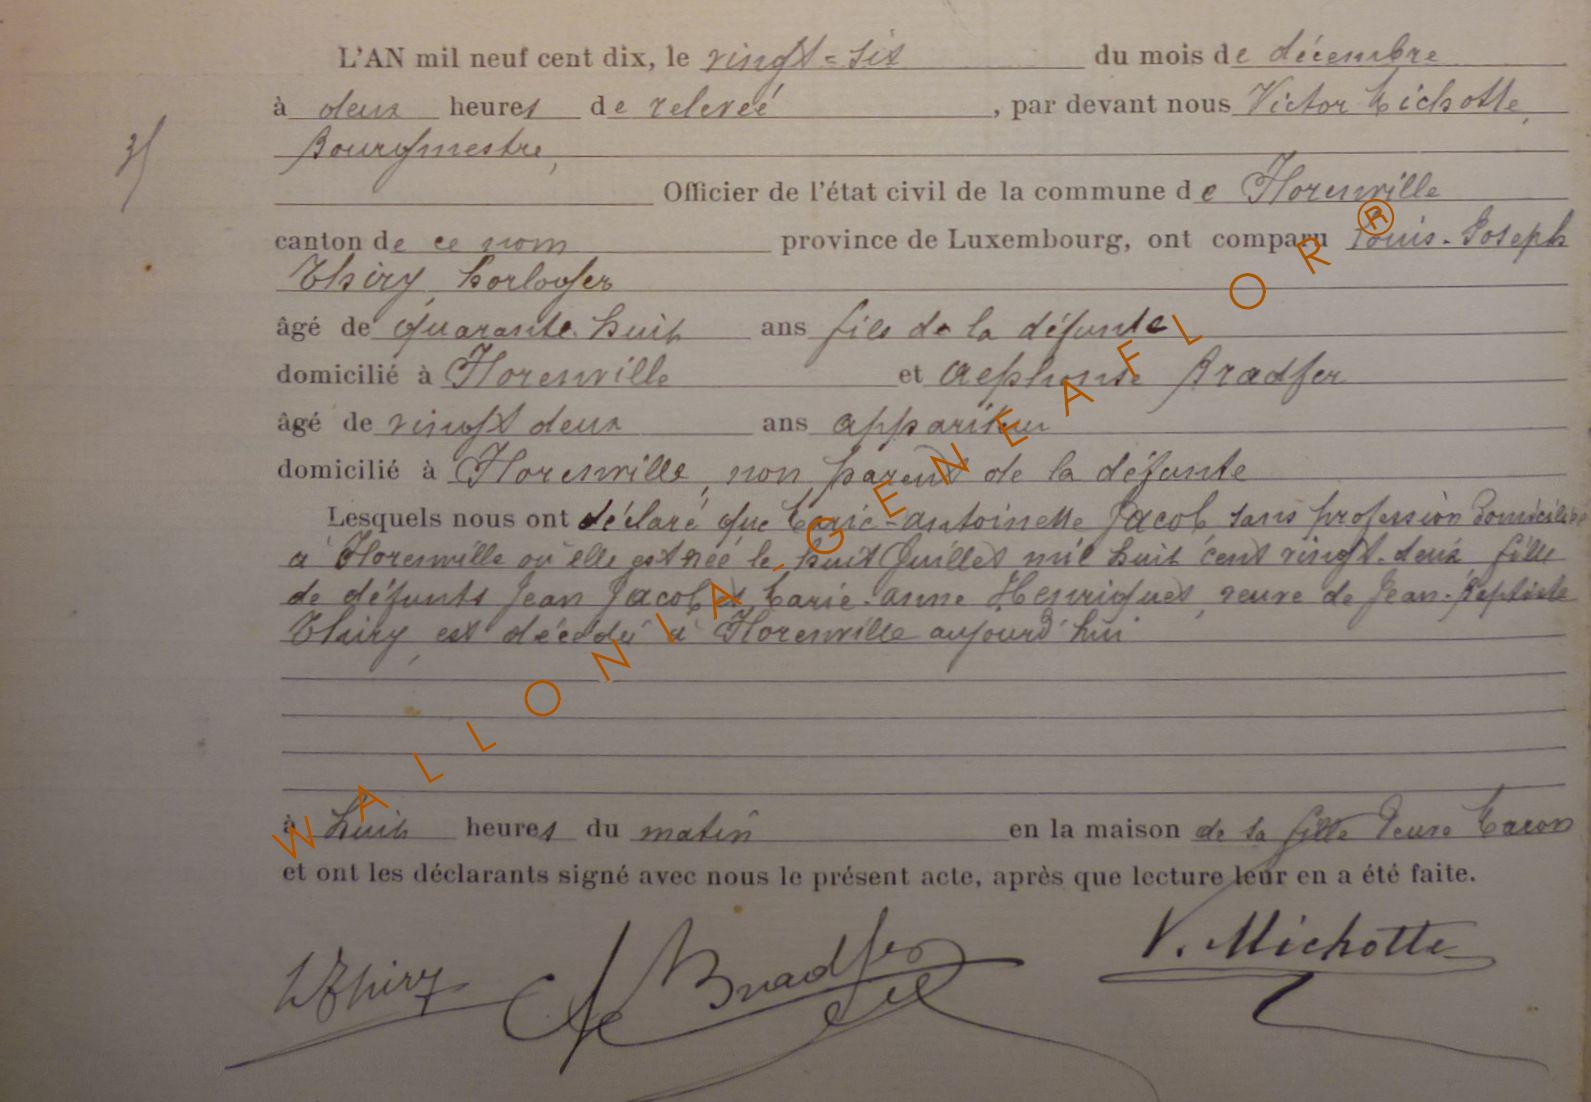 L'AN mil neuf cent dix, le vingt-six du mois de décembre
à deux heures de relevée, par devant nous Victor Michotte,
Bourgmestre,
Officier de l'état civil de la commune de Florenville
canton de ce nom province de Luxembourg, ont comparu Louis-Joseph
Thiry, horloger
âgé de quarante-huit ans fils de la défunte
domicilié à Florenville et Alphonse Bradfer
âgé de vingt deux ans appariteur
domicilié à Florenville, non parent de la défunte
Lesquels nous ont déclaré que Marie-Antoinette Jacob sans profession domiciliée
à Florenville où elle est née le huit Juillet mil huit cent vingt-deux, fille
de défunts Jean Jacob et Marie-Anne Henriquet, veuve de Jean-Baptiste
Thiry, est décédée à Florenville aujourd'hui
à huit heures du matin en la maison de sa fille Veuve Macon
et ont les déclarants signé avec nous le présent acte, après que lecture leur en a été faite.
LThiry A Bradfer V. Michotte
WALLONIA-GENEAFLOR®